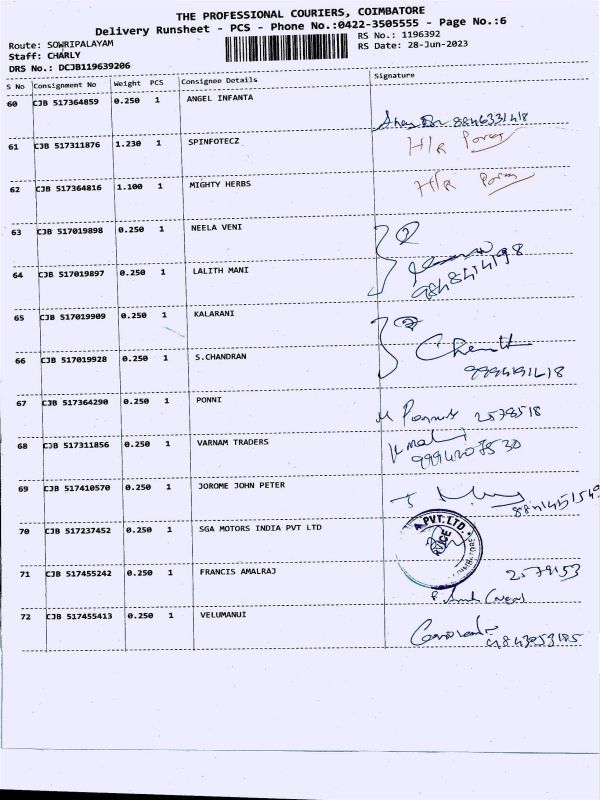 THE PROFESSIONAL COURIERS, COIMBATORE
Delivery Runsheet - PCS - Phone No.:0422-3505555 - Page No.:6
Route: SOWRIPALAYAM
Staff: CHARLY
DRS No.: DCJB119639206
RS No.: 1196392
RS Date: 28-Jun-2023
S No Consignment No Weight PCS Consignee Details Signature
60 CJB 517364859 0.250 1 ANGEL INFANTA
61 CJB 517311876 1.230 1 SPINFOTECZ H/R
62 CJB 517364816 1.100 1 MIGHTY HERBS H/R
63 CJB 517019898 0.250 1 NEELA VENI
64 CJB 517019897 0.250 1 LALITH MANI
65 CJB 517019909 0.250 1 KALARANI
66 CJB 517019928 0.250 1 S.CHANDRAN
67 CJB 517364290 0.250 1 PONNI
68 CJB 517311856 0.250 1 VARNAM TRADERS
69 CJB 517410570 0.250 1 JOROME JOHN PETER
70 CJB 517237452 0.250 1 SGA MOTORS INDIA PVT LTD
A PVT. LTD.
71 CJB 517455242 0.250 1 FRANCIS AMALRAJ
72 CJB 517455413 0.250 1 VELUMANUI